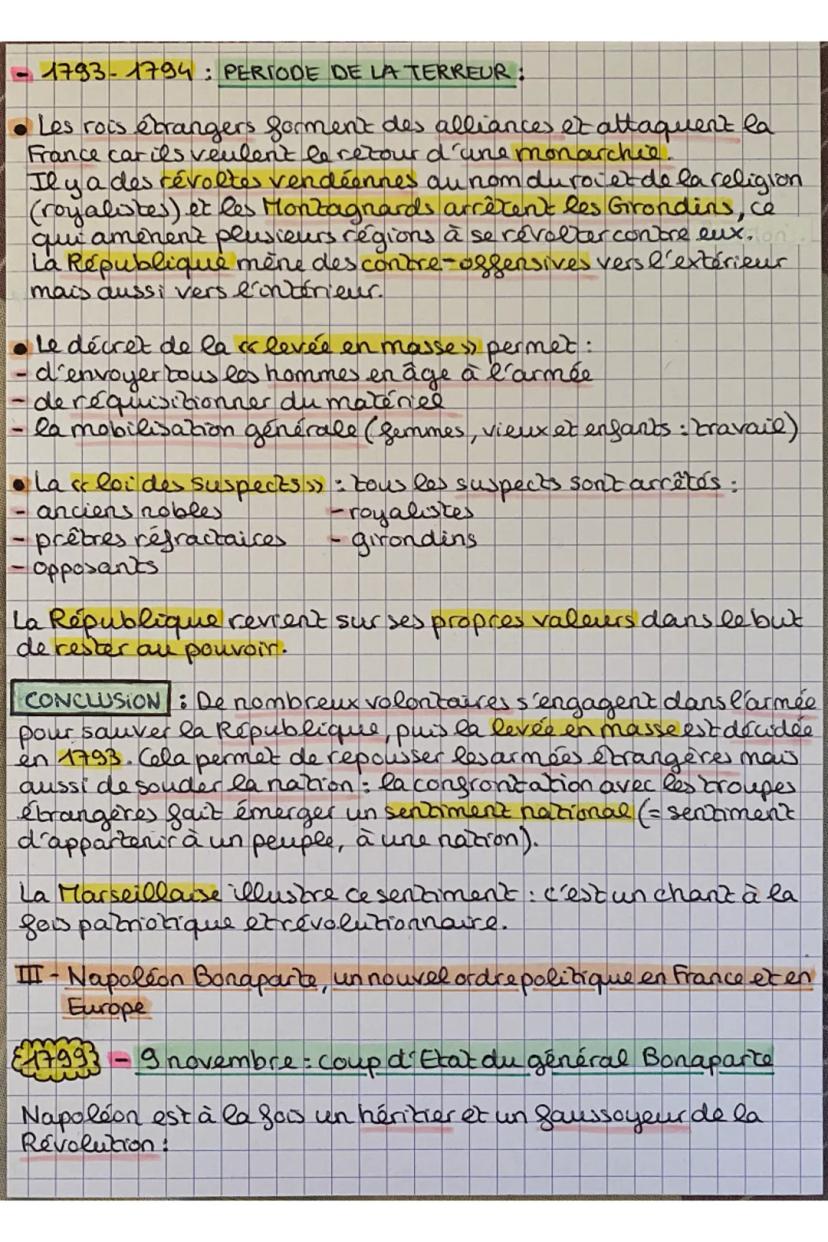 - 1793-1794 : PERIODE DE LA TERREUR :
• Les rois étrangers forment des alliances et attaquent la
France car ils veulent le retour d'une monarchie.
Il y a des révoltes vendéennes au nom du roi et de la religion
(royalistes) et les Montagnards arrêtent les Girondins, ce
qui amènent plusieurs régions à se révolter contre eux.
La République mène des contre-offensives vers l'extérieur
mais aussi vers l'intérieur.
• Le décret de la « levée en masse » permet :
- d'envoyer tous les hommes en âge à l'armée
- de réquisitionner du matériel
- la mobilisation générale (femmes, vieux et enfants : travail)
• La « loi des suspects » : tous les suspects sont arrêtés :
- anciens nobles - royalistes
- prêtres réfractaires - girondins
- opposants
La République revient sur ses propres valeurs dans le but
de rester au pouvoir.
CONCLUSION : De nombreux volontaires s'engagent dans l'armée
pour sauver la République, puis la levée en masse est décidée
en 1793. Cela permet de repousser les armées étrangères mais
aussi de souder la nation : la confrontation avec les troupes
étrangères fait émerger un sentiment national (= sentiment
d'appartenir à un peuple, à une nation).
La Marseillaise illustre ce sentiment : c'est un chant à la
fois patriotique et révolutionnaire.
III - Napoléon Bonaparte, un nouvel ordre politique en France et en
Europe
1799 - 9 novembre : coup d'Etat du général Bonaparte
Napoléon est à la fois un héritier et un faussoyeur de la
Révolution :